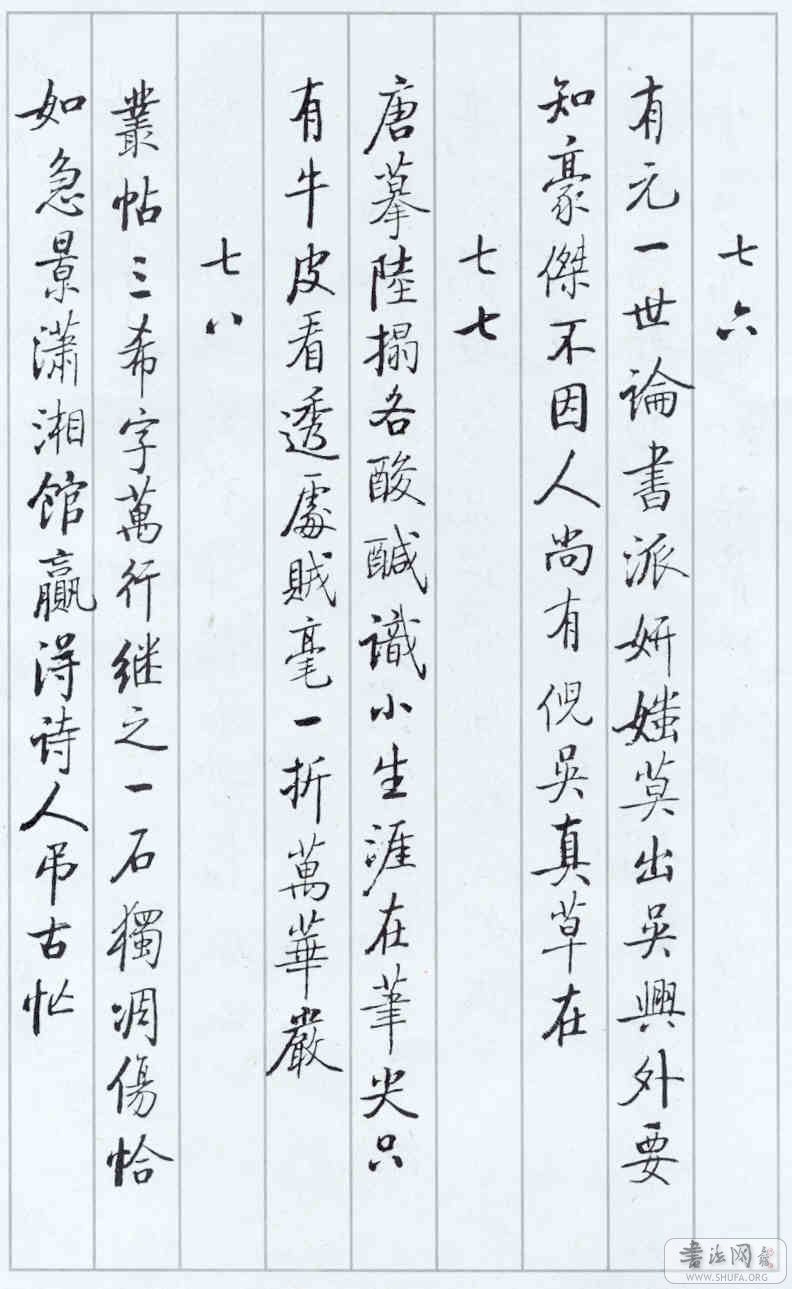 七六
有元一世論書派妍媸莫出吳興外要
知豪傑不因人尚有倪吳真草在
七七
唐摹陸搨各酸鹹識小生涯在筆尖只
有牛皮看透處賊毫一折萬華嚴
七八
叢帖三希字萬行继之一石獨凋傷恰
如急景瀟湘館贏得诗人吊古忙
書法网
WWW.SHUFA.ORG